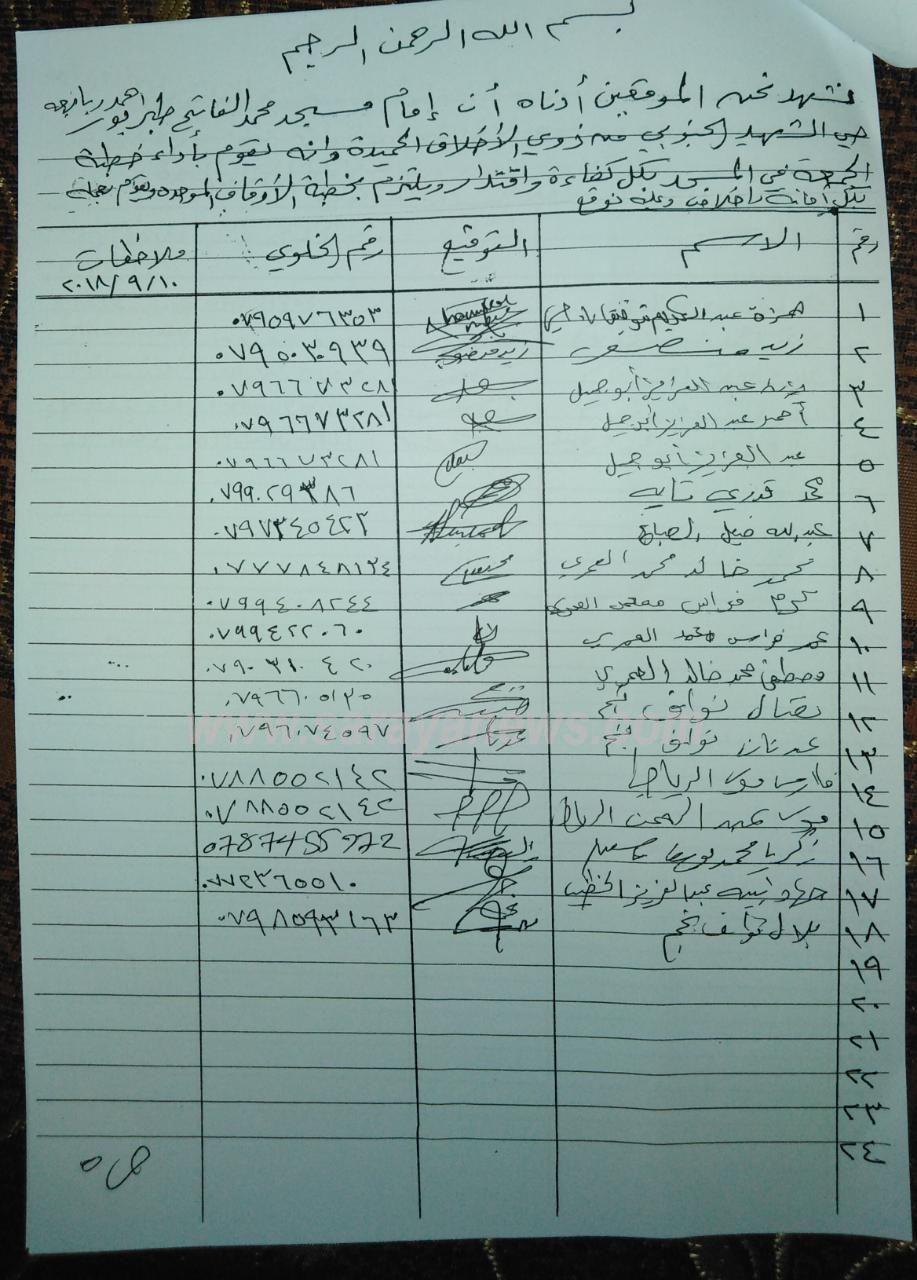 بسم الله الرحمن الرحيم
نشهد نحن الموقعين أدناه أن إمام مسجد محمد الفاتح طبربور احمد ربايعه
حي الشهيد الجنوبي من ذوي الأخلاق الحميدة وانه يقوم بأداء خطبة
الجمعة في المسجد بكل كفاءة واقتدار ويلتزم بخطبة الأوقاف الموحدة ويقوم بعمله
بكل أمانة وعليه نوقع
رقم الاسم التوقيع رقم الخلوي ملاحظات
٢٠١٨/٩/١٠
١ حمزة عبد الكريم ٠٧٩٥٩٧٦٣٥٣
٢ زيد منصور ٠٧٩٥٠٣٠٩٣٩
٣ عبد العزيز أبو جميل ٠٧٩٦٦٧٣٢٨١
٤ أحمد عبد العزيز أبو جميل ٠٧٩٦٦٧٣٢٨١
٥ عبد العزيز أبو جميل ٠٧٩٦٦٧٣٢٨١
٦ محمد قدري تايه ٠٧٩٩٠٢٩٣٨٦
٧ عبدالله الصباغ ٠٧٩٧٣٤٥٤٢٣
٨ محمد خالد محمد العمري ٠٧٧٧٨٤٨١٢٤
٩ كرم فراس محمد العمري ٠٧٩٩٤٠٨٢٤٤
١٠ عمر فراس محمد العمري ٠٧٩٩٤٢٢٠٦٠
١١ مصطفى محمد خالد العمري ٠٧٩٠٣١٠٤٢٠
١٢ نضال نواف نجم ٠٧٩٦٦٠٥١٢٥
www.sarayanews.com
١٣ عدنان نجم عدنان ٠٧٩٦٠٧٤٥٩٧
١٤ فارس موسى الرياحي ٠٧٨٨٥٥٠٢١٤٢
١٥ موسى عبد الرحمن ٠٧٨٨٥٥٠٢١٤٢
١٦ زكريا محمد 0787455972
١٧ عبد العزيز الخطيب
١٨ بلال نواف نجم ٠٧٩٨٥٩٣١٦٣
١٩
٢٠
٢١
٢٢
٢٣
٢٤